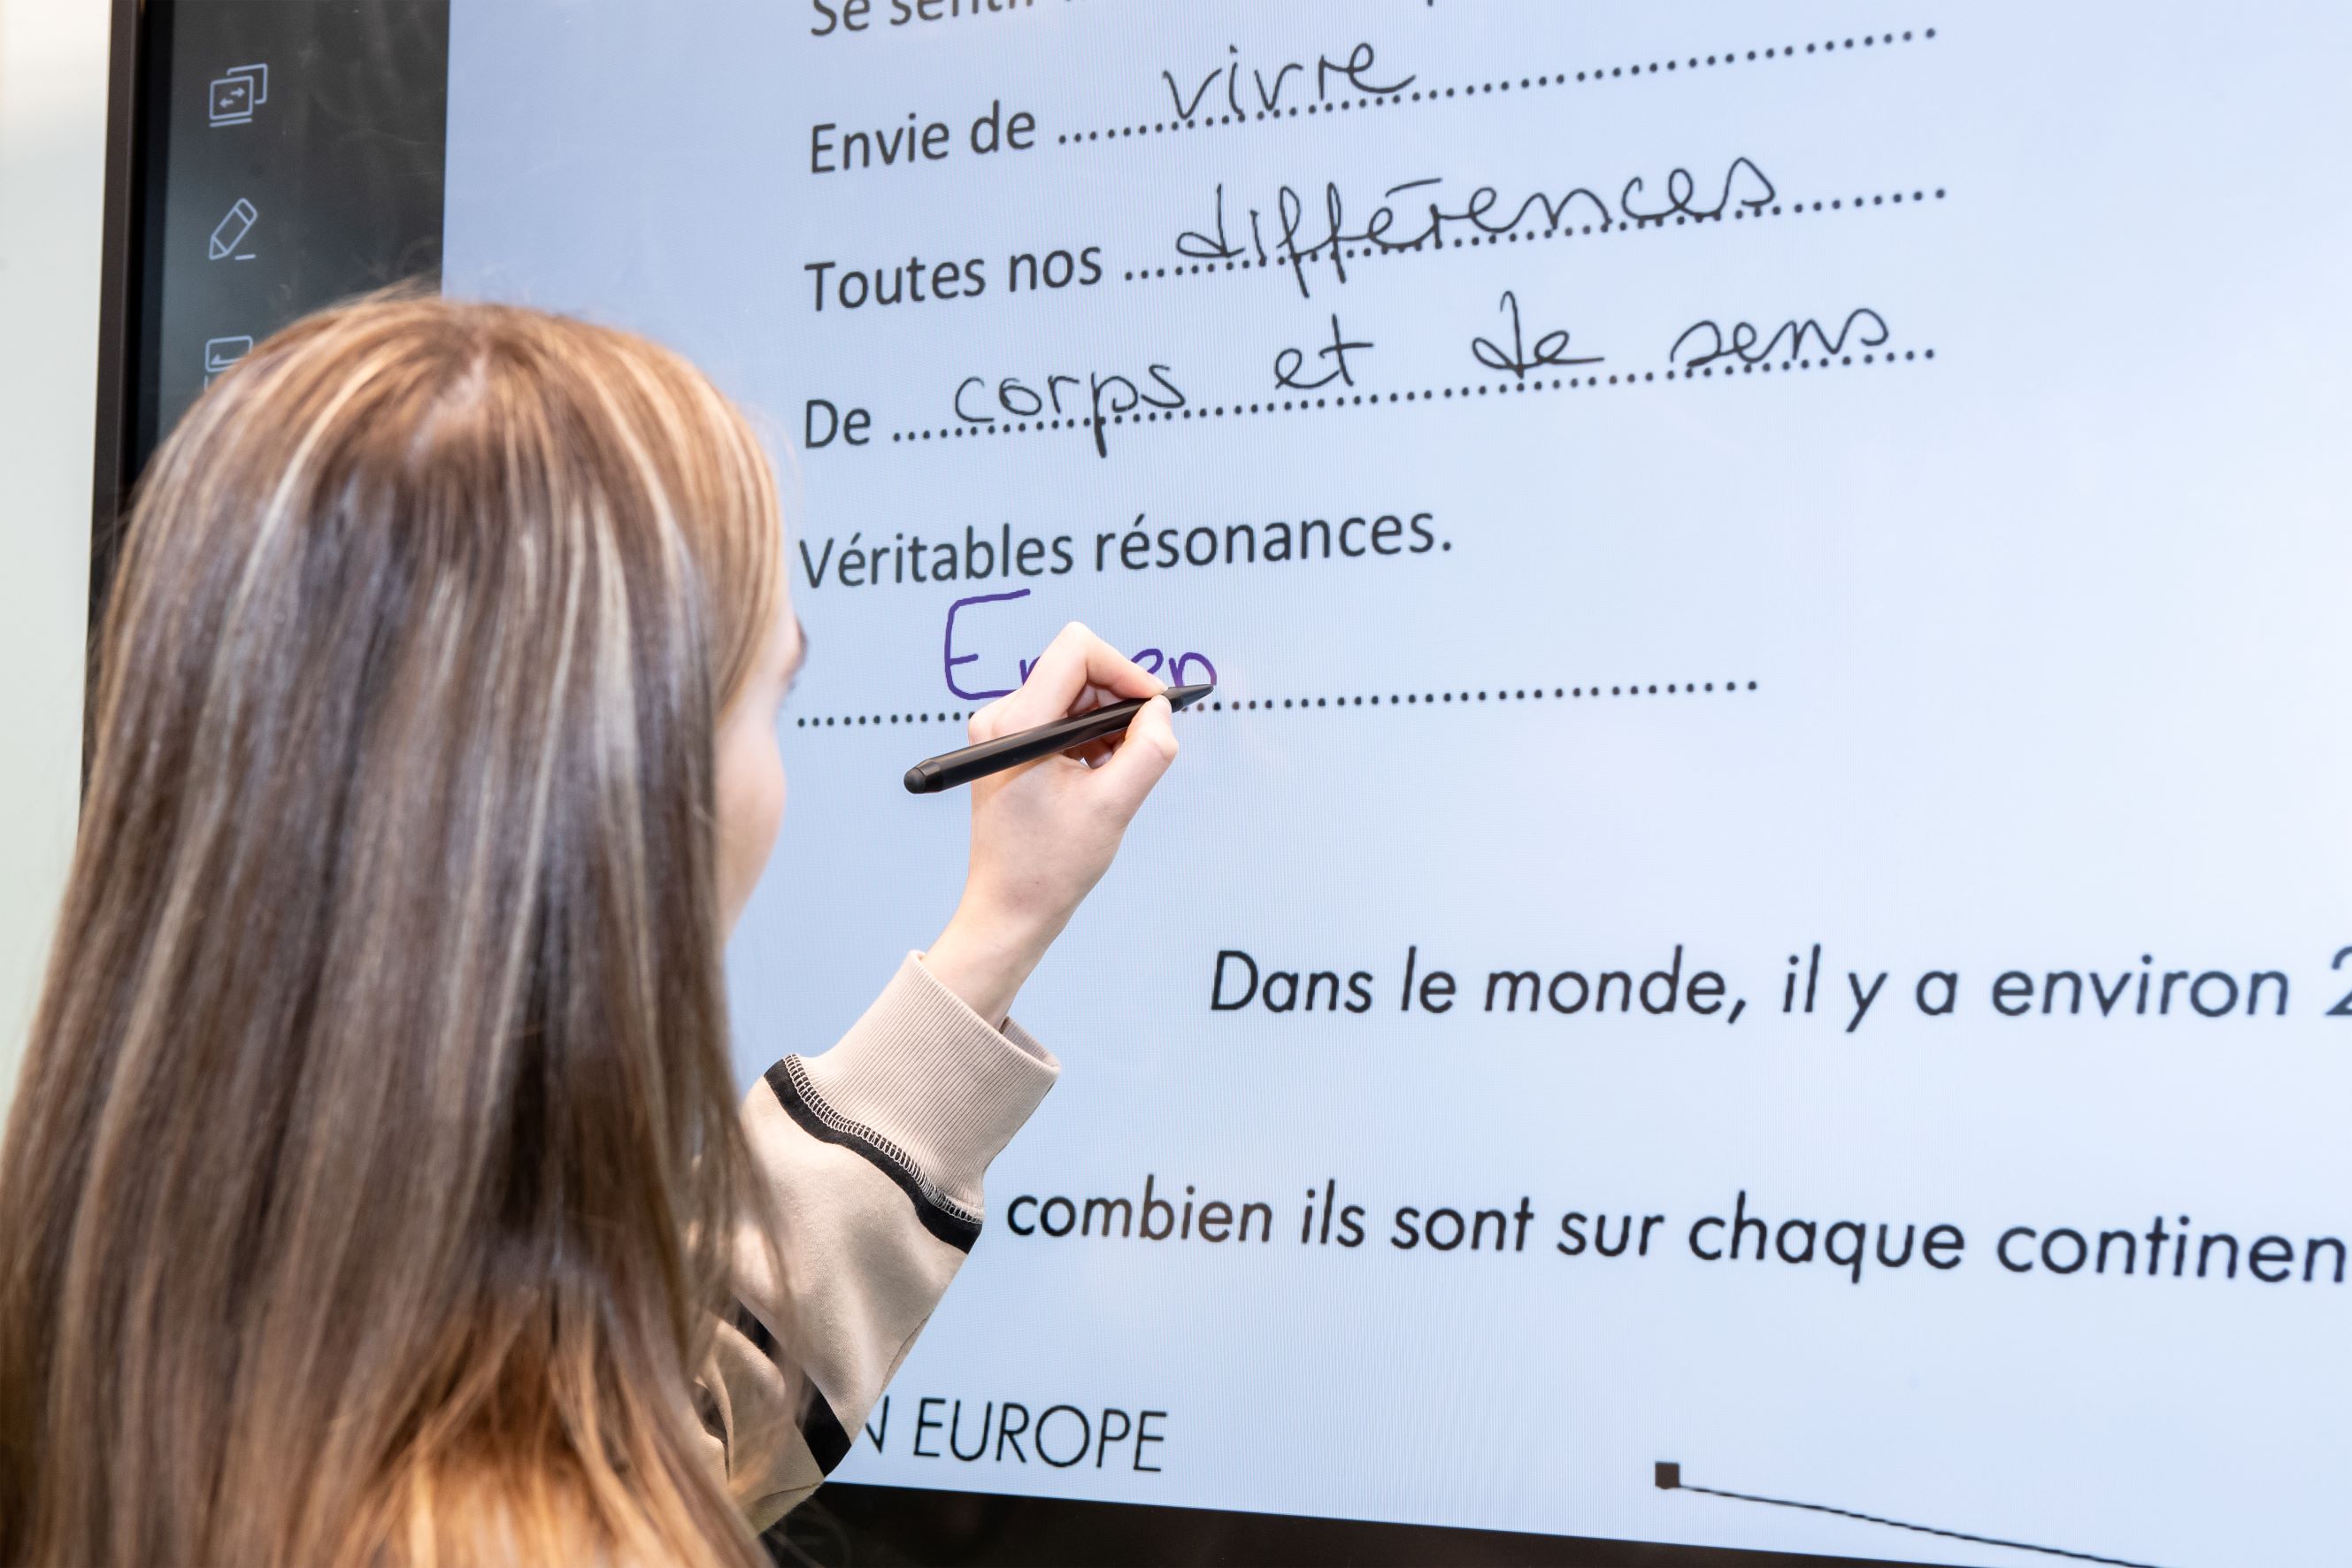 Se sentir
Envie de ........ vivre ........
Toutes nos ... différences ........
De ..... corps et de sens ...
Véritables résonances.
Dans le monde, il y a environ 2
combien ils sont sur chaque continen
N EUROPE